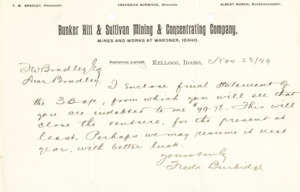 F. W. BRADLEY, PRESIDENT. FREDERICK BURBIDGE, MANAGER. ALBERT BURCH, SUPERINTENDENT.
Bunker Hill & Sullivan Mining & Concentrating Company.
MINES AND WORKS AT WARDNER, IDAHO.
KELLOGG, IDAHO, Nov 23/99
F W Bradley Esq
Dear Bradley,
I enclose final statement of
the 3 Bafe, from which you will see that
you are indebted to me $99.78. This will
close the venture, for the present at
least. Perhaps we may resume it next
year, with better luck.
Yours truly
Fredk Burbidge